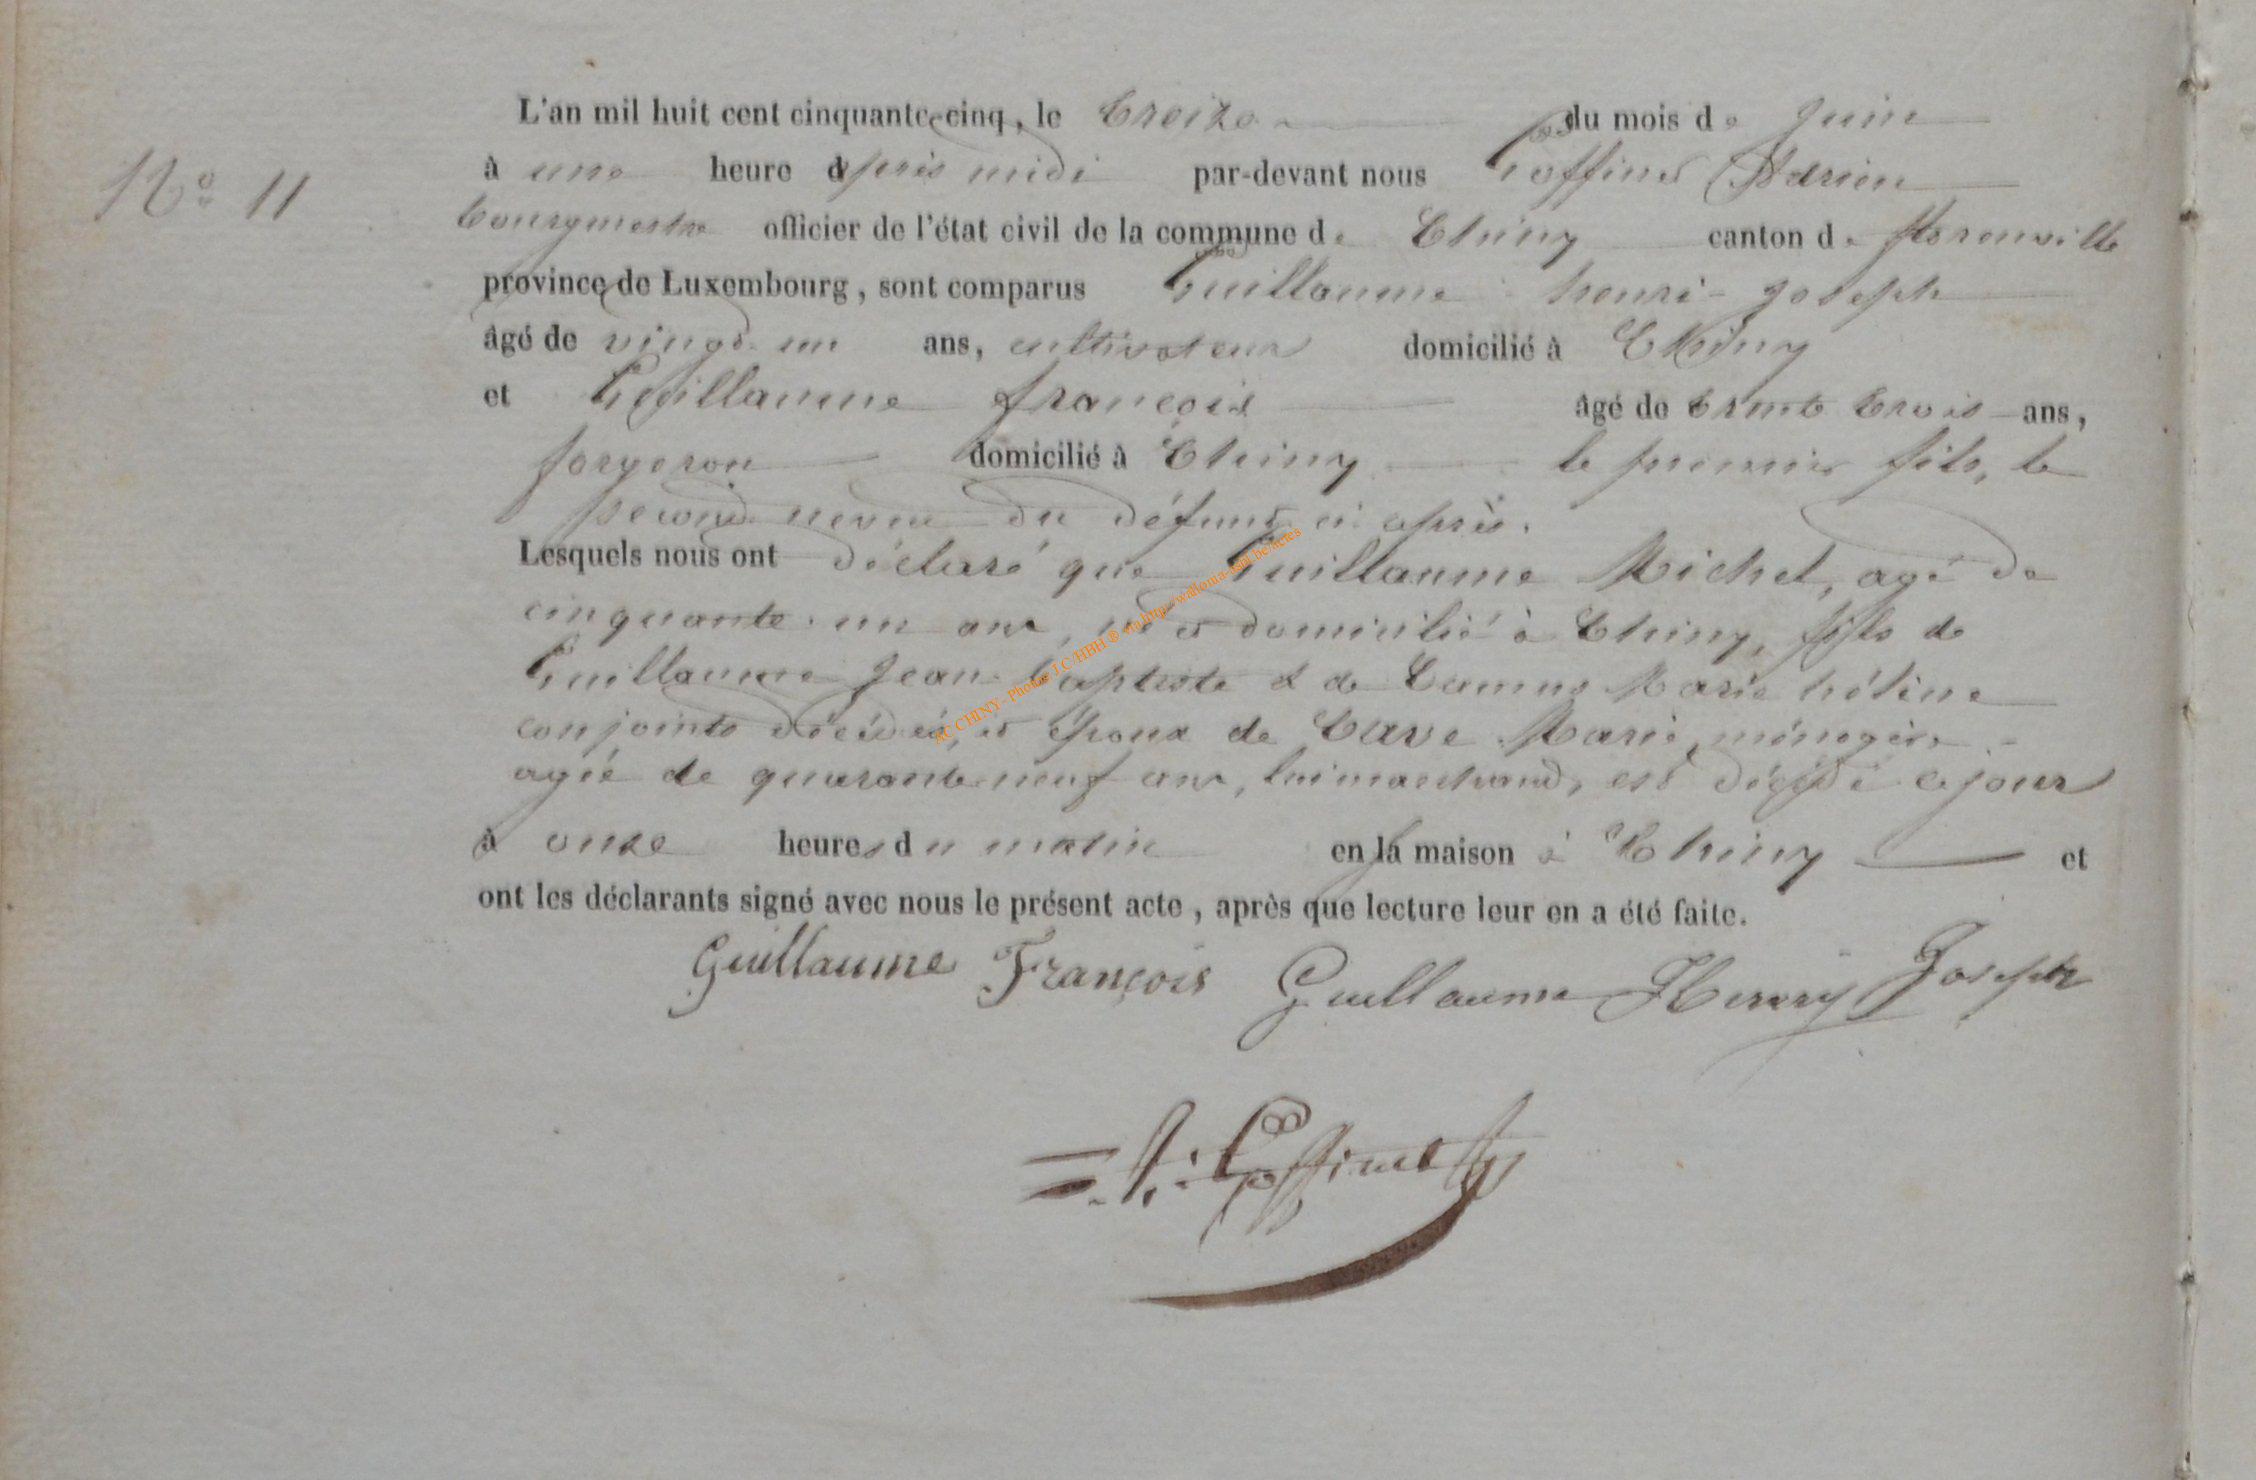 L'an mil huit cent cinquante-cinq, le treize du mois de juin
N° 11
à une heure après midi par-devant nous Goffinet Adrien
bourgmestre officier de l'état civil de la commune de Chiny canton de florenville
province de Luxembourg, sont comparus Guillaume henri-joseph
âgé de vingt-un ans, cultivateur domicilié à Chiny
et Guillaume françois âgé de trente trois ans,
forgeron domicilié à Chiny le premier fils, le
second neveu du défunt ci après.
Lesquels nous ont déclaré que Guillaume Michel, agé de
cinquante-un ans, né et domicilié à Chiny, fils de
Guillaume jean-baptiste & de Camus Marie hélène
conjoints décédés, et époux de Marie, ménagère
agée de quarante neuf ans, lui marchand, est décédé ce jour
à onze heures du matin en sa maison à Chiny et
ont les déclarants signé avec nous le présent acte, après que lecture leur en a été faite.
Guillaume François Guillaume Henry Joseph
A. Goffinet
AC CHINY - Photos J.C/HBH ® via http://wallonia-asbl.be/actes